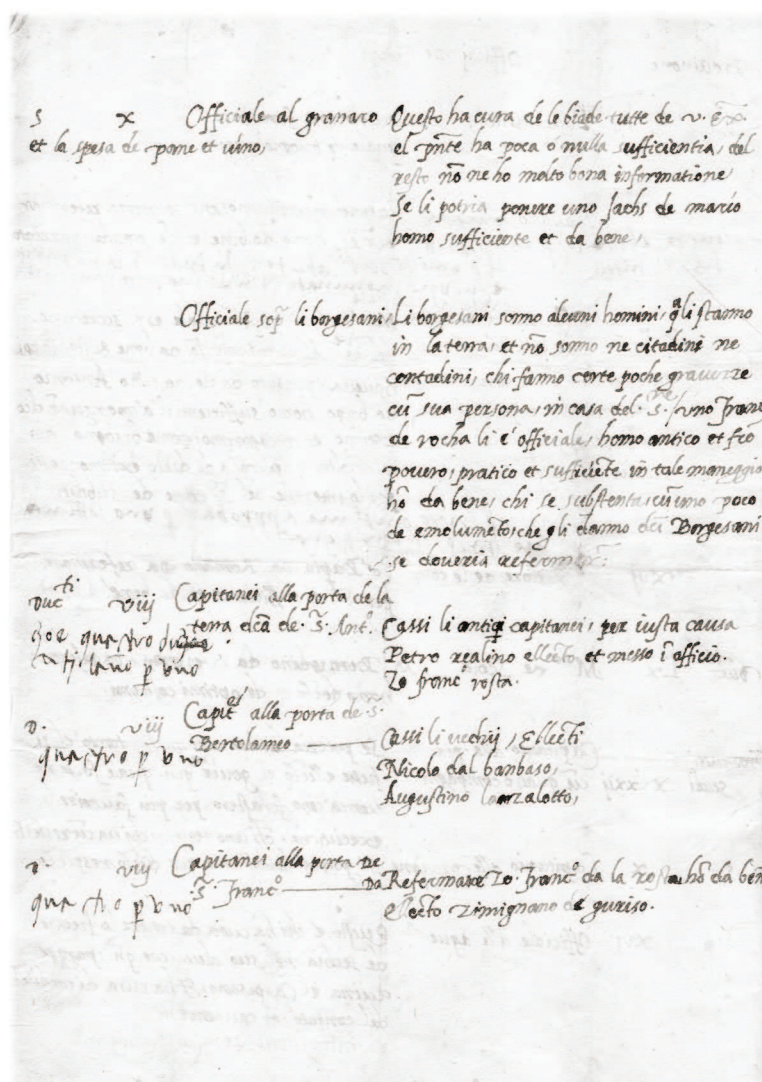 S x Officiale al granaro
et la spesa de pome et vino,
Questo ha cura de le biade tutte de v. Ex.
el pnte ha poca o nulla sufficientia, del
resto nõ ne ho molto bona informatione
Se li potria ponere uno Jachs de mario
homo sufficiente et da bene,
Officiale sop li borgesani,
Li borgesani sonno alcuni homini, qli stanno
in la terra, et nõ sonno ne citadini ne
contadini, chi fanno certe poche gravezze
cũ sua persona, in casa del S.re / uno Franc
de rocha li è officiale, homo antico et
povero, pratico et sufficiẽte in tale maneggio
hõ da bene, chi se substenta, cũ uno poco
de emolumẽto, che gli danno dei Borgesani
se doveria refermare:
Ducti viij Capitanei alla porta de la
terra dcã de S. Antº.
cioe quatro
p uno
Cassi li antiqi capitanei, per iusta causa
Petro realino ellecto, et messo ĩ officio.
Zo francº rosta.
D. viij Capitei alla porta de S.
Bertolameo
quatro p uno
Cassi li vechij, Ellecti
Nicolo dal banbaso,
Augustino lanzalotto,
D. viij Capitanei alla porta de
S. Francº
quatro p uno
Da Refermare Zo. Francº da la rosta, hõ da ben
Ellecto Zimignano de guriso.